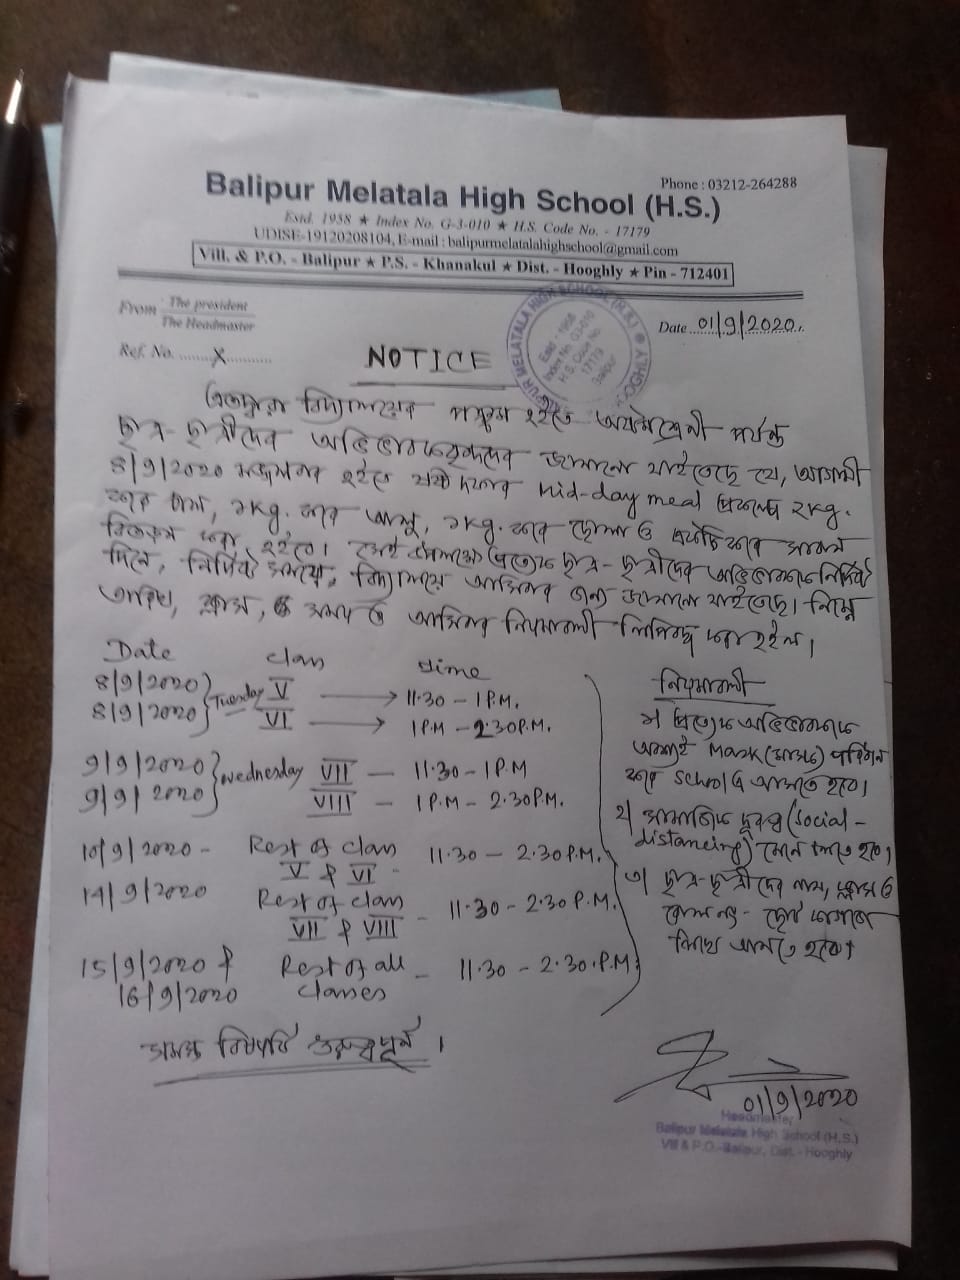 Balipur Melatala High School (H.S.)
Phone : 03212-264288
Estd. 1958 ★ Index No. G-3-010 ★ H.S. Code No. - 17179
UDISE-19120208104, E-mail : balipurmelatalahighschool@gmail.com
Vill. & P.O. - Balipur ★ P.S. - Khanakul ★ Dist. - Hooghly ★ Pin - 712401
From The president
The Headmaster
Date 01/9/2020
Ref. No. ........X...........
BALIPUR MELATALA HIGH SCHOOL (H.S.) ★ HOOGHLY
Estd : 1958
Index No. G3-010
H.S. Code No
17179
Balipur
NOTICE
এতদ্বারা বিদ্যালয়ের পঞ্চম হইতে অষ্টমশ্রেণী পর্যন্ত
ছাত্র-ছাত্রীদের অভিভাবকদের জানানো যাইতেছে যে, আগামী
8/9/2020 মঙ্গলবার হইতে দফার mid-day meal প্রকল্পে 2kg.
করে চাল, 2kg. করে আলু, 1kg. করে ছোলা ও একটি করে সাবান
বিতরণ করা হইবে। সেই প্রত্যেক ছাত্র-ছাত্রীদের অভিভাবককে নির্দিষ্ট
দিনে, নির্দিষ্ট সময়ে, বিদ্যালয়ে আসিবার জন্য জানানো যাইতেছে। নিম্নে
তারিখ, ক্লাস, সময় ও আসিবার নিয়মাবলী লিপিবদ্ধ করা হইল।
Date class time
8/9/2020 } Tuesday V → 11.30 - 1P.M.
8/9/2020 VI → 1P.M - 2.30P.M.
9/9/2020 } Wednesday VII - 11.30 - 1P.M
9/9/2020 VIII - 1P.M - 2.30P.M.
10/9/2020 - Rest of class 11.30 - 2.30P.M.
V & VI
14/9/2020 Rest of class - 11.30 - 2.30P.M.
VII & VIII
15/9/2020 & Rest of all - 11.30 - 2.30.P.M.
16/9/2020 classes
নিয়মাবলী
১। প্রত্যেক অভিভাবককে
অবশ্যই Mask (মাস্ক) পরিধান
করে School এ আসতে হবে।
২। সামাজিক দূরত্ব (social-
distancing) মেনে চলতে হবে।
৩। ছাত্র-ছাত্রীদের নাম, ক্লাস ও
রোল নং - ছোট কাগজে
লিখে আনতে হবে।
সমস্ত বিষয়টি গুরুত্বপূর্ণ।
01/9/2020
Headmaster
Balipur Melatala High School (H.S.)
Vill & P.O.-Balipur, Dist. - Hooghly